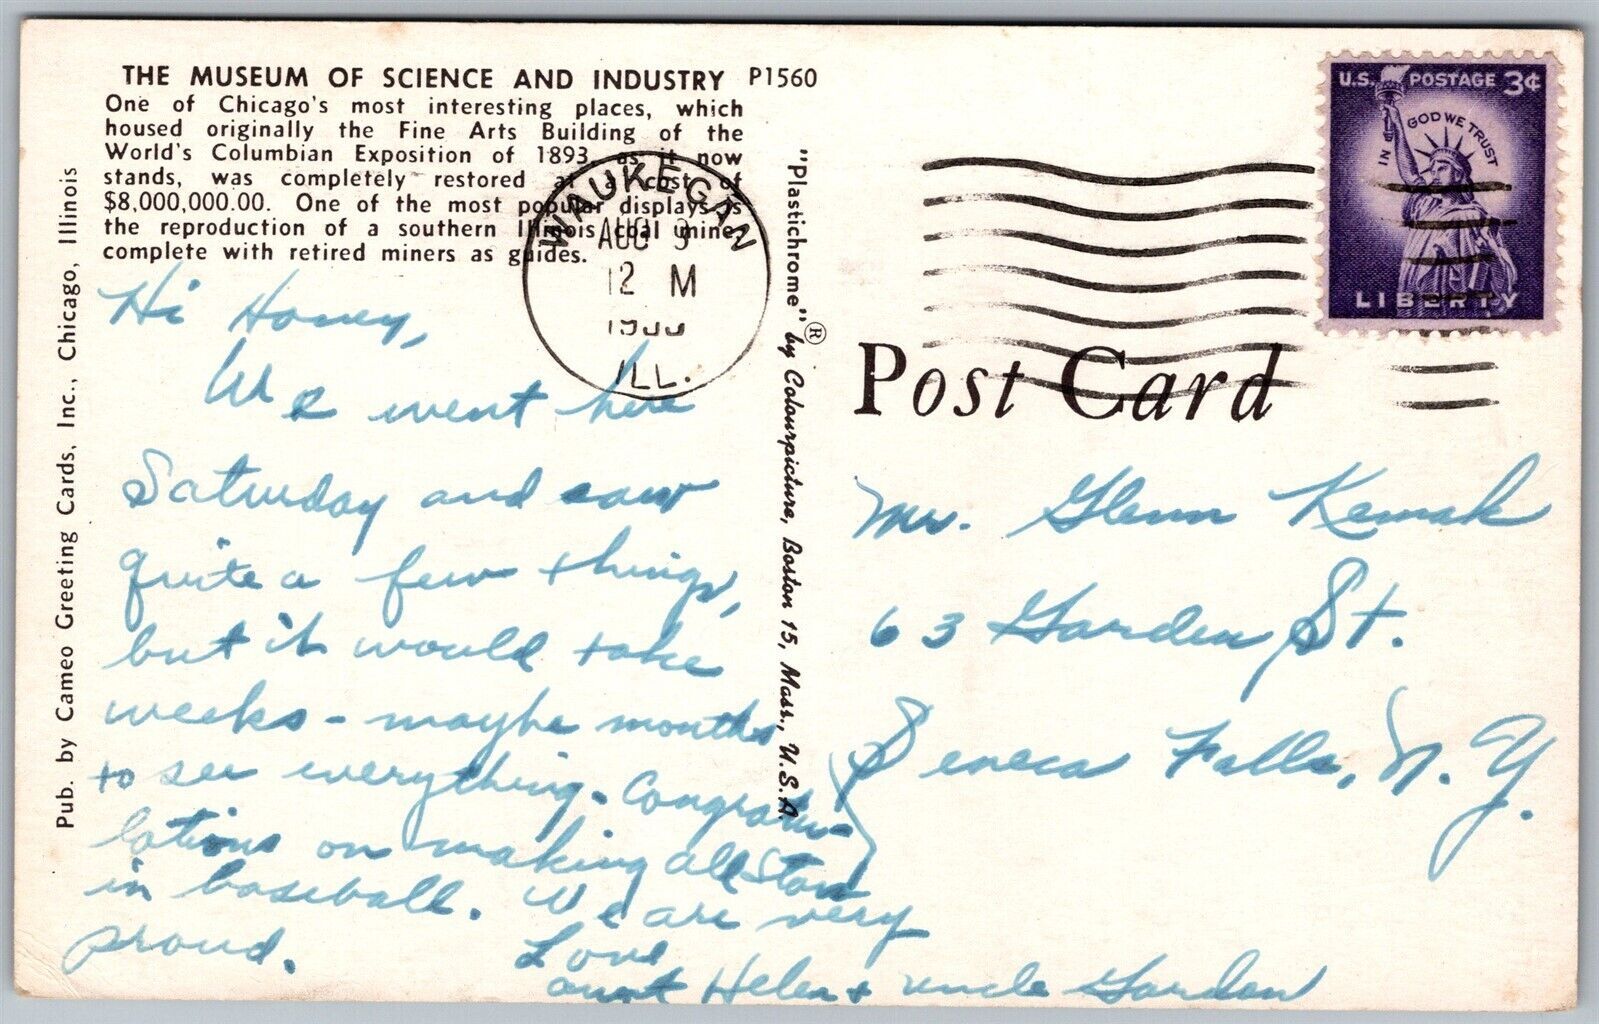 THE MUSEUM OF SCIENCE AND INDUSTRY P1560
One of Chicago's most interesting places, which
housed originally the Fine Arts Building of the
World's Columbian Exposition of 1893, as it now
stands, was completely restored at a cost of
$8,000,000.00. One of the most popular displays is
the reproduction of a southern Illinois coal mine,
complete with retired miners as guides.
Pub. by Cameo Greeting Cards, Inc., Chicago, Illinois
Hi Honey,
We went here
Saturday and saw
quite a few things,
but it would take
weeks - maybe months
to see everything. Congratu-
lations on making all Stars
in baseball. We are very
proud.
Love
Aunt Helen + Uncle Gordon
"Plastichrome"® by Colourpicture, Boston 15, Mass., U.S.A.
WAUKEGAN
AUG
12 M
ILL.
U.S. POSTAGE 3¢
IN GOD WE TRUST
LIBERTY
Post Card
Mr. Glenn
63 Garden St.
Seneca Falls, N.Y.